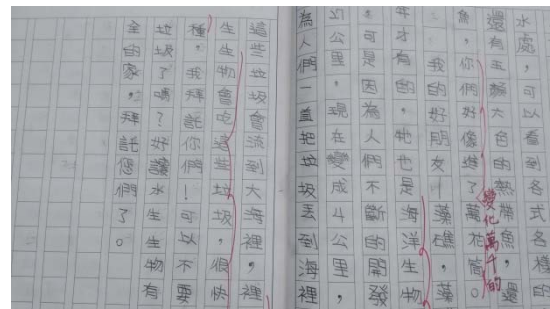 水處，可以看到各式各樣的
還有五顏六色的熱帶魚，還
魚，你們好像進了變化萬千的萬花筒。
我的好朋友藻礁，藻
年才有的，牠也是海洋生物
。可是因為人們不斷的開發
公里，現在變成4公里，
為人們一直把垃圾丟到海裡
這些垃圾會流到大海裡，裡
生生物會吃這些垃圾，很快
種，我拜託你們！可以不要
垃圾了嗎？好讓水生生物有
全的家，拜託您們了。